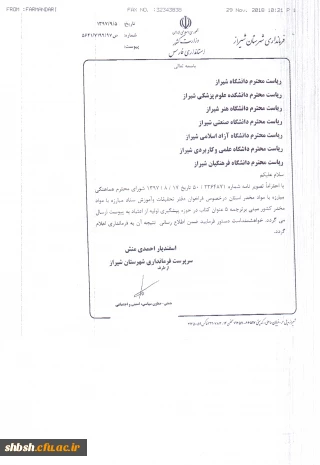 FROM (FARMANDAR) FAX NO. :32343838 29 Nov. 2018 10:31 P 1
فرمانداری شهرستان شیراز
وزارت کشور
استانداری فارس
تاریخ ۱۳۹۷/۹/۵
شماره:
پیوست:
باسمه تعالی
ریاست محترم دانشگاه شیراز
ریاست محترم دانشکده علوم پزشکی شیراز
ریاست محترم دانشگاه هنر شیراز
ریاست محترم دانشگاه صنعتی شیراز
ریاست محترم دانشگاه آزاد اسلامی شیراز
ریاست محترم دانشگاه علمی و کاربردی شیراز
ریاست محترم دانشگاه فرهنگیان شیراز
سلام علیکم
با احترام؛ تصویر نامه شماره تاریخ ۱۳۹۷/۸/۱۲ شورای محترم هماهنگی
مبارزه با مواد مخدر استان درخصوص فراخوان دفتر تحقیقات وآموزش ستاد مبارزه با مواد
مخدر کشور مبنی برترجمه ۵ عنوان کتاب در حوزه پیشگیری اولیه از اعتیاد به پیوست ارسال
می گردد. خواهشمنداست دستور فرمائید ضمن اطلاع رسانی نتیجه آن به فرمانداری اعلام
گردد.
اسفندیار احمدی منش
سرپرست فرمانداری شهرستان شیراز
shbsh.cfu.ac.ir